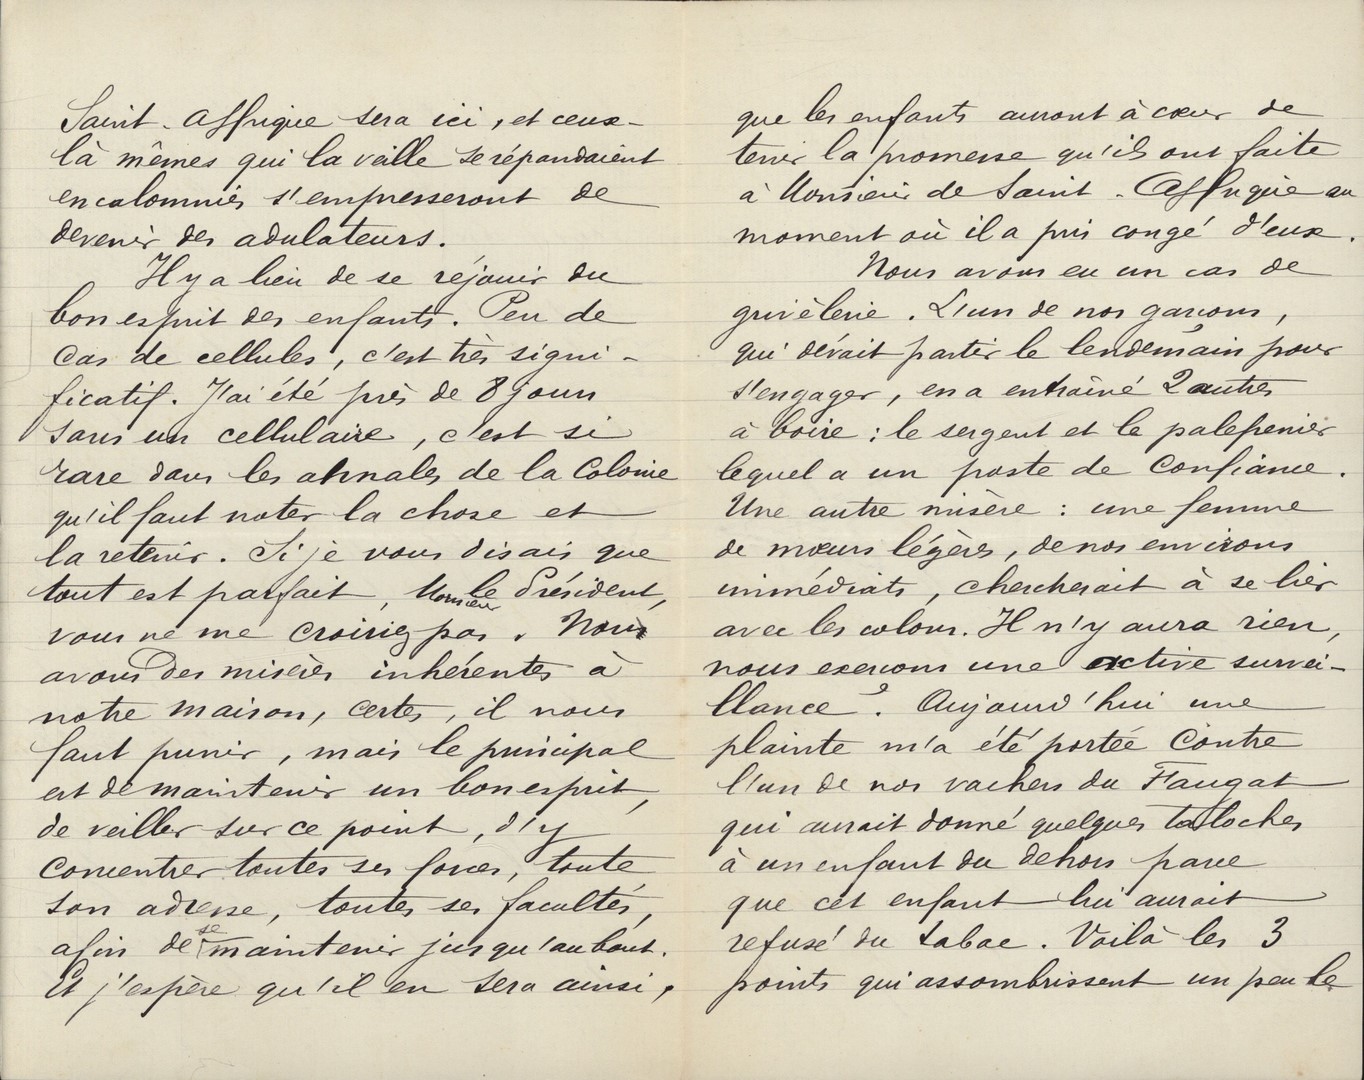 Saint-Affrique sera ici, et ceux-
là mêmes qui la veille se répandaient
en calomnies s'empresseront de
devenir des adulateurs.
Il y a lieu de se réjouir du
bon esprit des enfants. Peu de
cas de cellules, c'est très signi-
ficatif. J'ai été près de 8 jours
sans un cellulaire, c'est si
rare dans les annales de la Colonie
qu'il faut noter la chose et
la retenir. Si je vous disais que
tout est parfait, Monsieur le Président,
vous ne me croiriez pas. Nous
avons des misères inhérentes à
notre maison, certes, il nous
faut punir, mais le principal
est de maintenir un bon esprit,
de veiller sur ce point, d'y
concentrer toutes ses forces, toute
son adresse, toutes ses facultés,
afin de se maintenir jusqu'au bout.
Et j'espère qu'il en sera ainsi,
que les enfants auront à cœur de
tenir la promesse qu'ils ont faite
à Monsieur de Saint-Affrique au
moment où il a pris congé d'eux.
Nous avons eu un cas de
grivèlerie. L'un de nos garçons,
qui devait partir le lendemain pour
s'engager, en a entraîné 2 autres
à boire : le sergent et le palefrenier
lequel a un poste de confiance.
Une autre misère : une femme
de mœurs légères, de nos environs
immédiats, chercherait à se lier
avec les colons. Il n'y aura rien,
nous exerçons une active survei-
llance. Aujourd'hui une
plainte m'a été portée contre
l'un de nos vachers du Faugat
qui aurait donné quelques taloches
à un enfant du dehors parce
que cet enfant lui aurait
refusé du tabac. Voilà les 3
points qui assombrissent un peu le